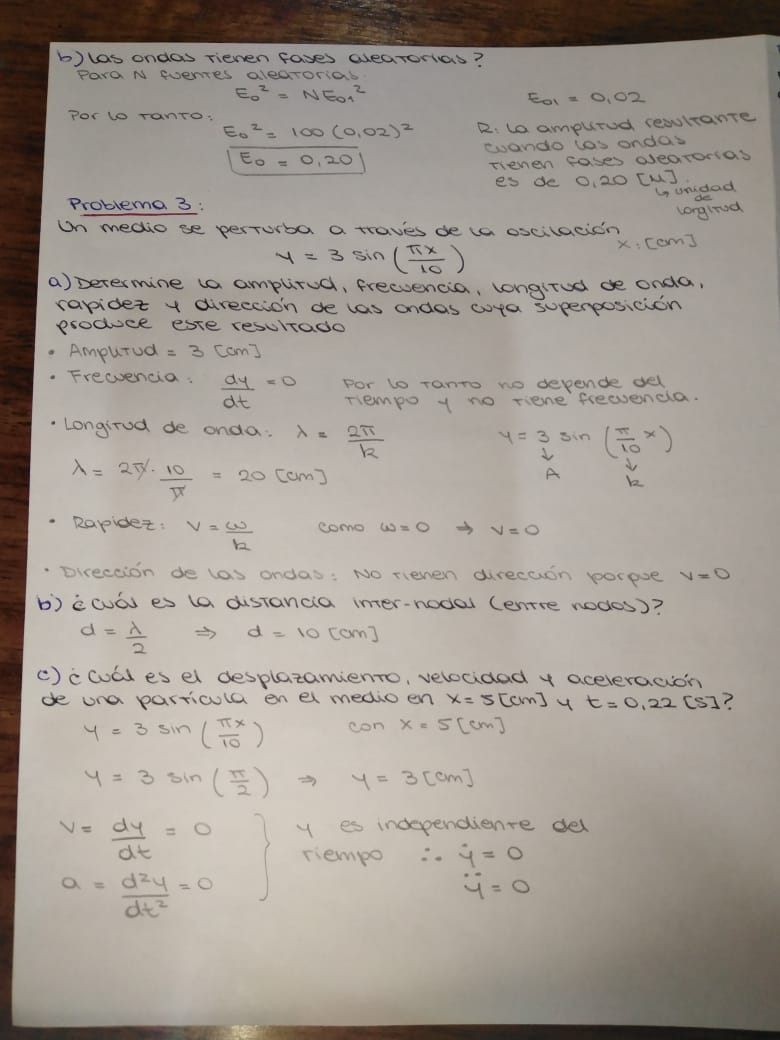 b) Las ondas tienen fases aleatorias?
Para N fuentes aleatorias.
E₀² = NE₀₁²
E₀₁ = 0,02
Por lo tanto:
E₀² = 100 (0,02)²
E₀ = 0,20
R: La amplitud resultante
cuando las ondas
tienen fases aleatorias
es de 0,20 [u].
↳ unidad
de
longitud
Problema 3:
Un medio se perturba a través de la oscilación
y = 3 sin (πx/10)
x: [cm]
a) Determine la amplitud, frecuencia, longitud de onda,
rapidez y dirección de las ondas cuya superposición
produce este resultado
• Amplitud = 3 [cm]
• Frecuencia: dy/dt = 0 Por lo tanto no depende del
tiempo y no tiene frecuencia.
• Longitud de onda: λ = 2π/k
y = 3 sin (π/10 x)
↓ ↓
A k
λ = 2π · 10/π = 20 [cm]
• Rapidez: v = ω/k como ω = 0 ⇒ v = 0
• Dirección de las ondas: No tienen dirección porque v = 0
b) ¿cuál es la distancia inter-nodal (entre nodos)?
d = λ/2 ⇒ d = 10 [cm]
c) ¿cuál es el desplazamiento, velocidad y aceleración
de una partícula en el medio en x = 5 [cm] y t = 0,22 [s]?
y = 3 sin (πx/10) con x = 5 [cm]
y = 3 sin (π/2) ⇒ y = 3 [cm]
v = dy/dt = 0
a = d²y/dt² = 0
} y es independiente del
tiempo ∴ ẏ = 0
ÿ = 0